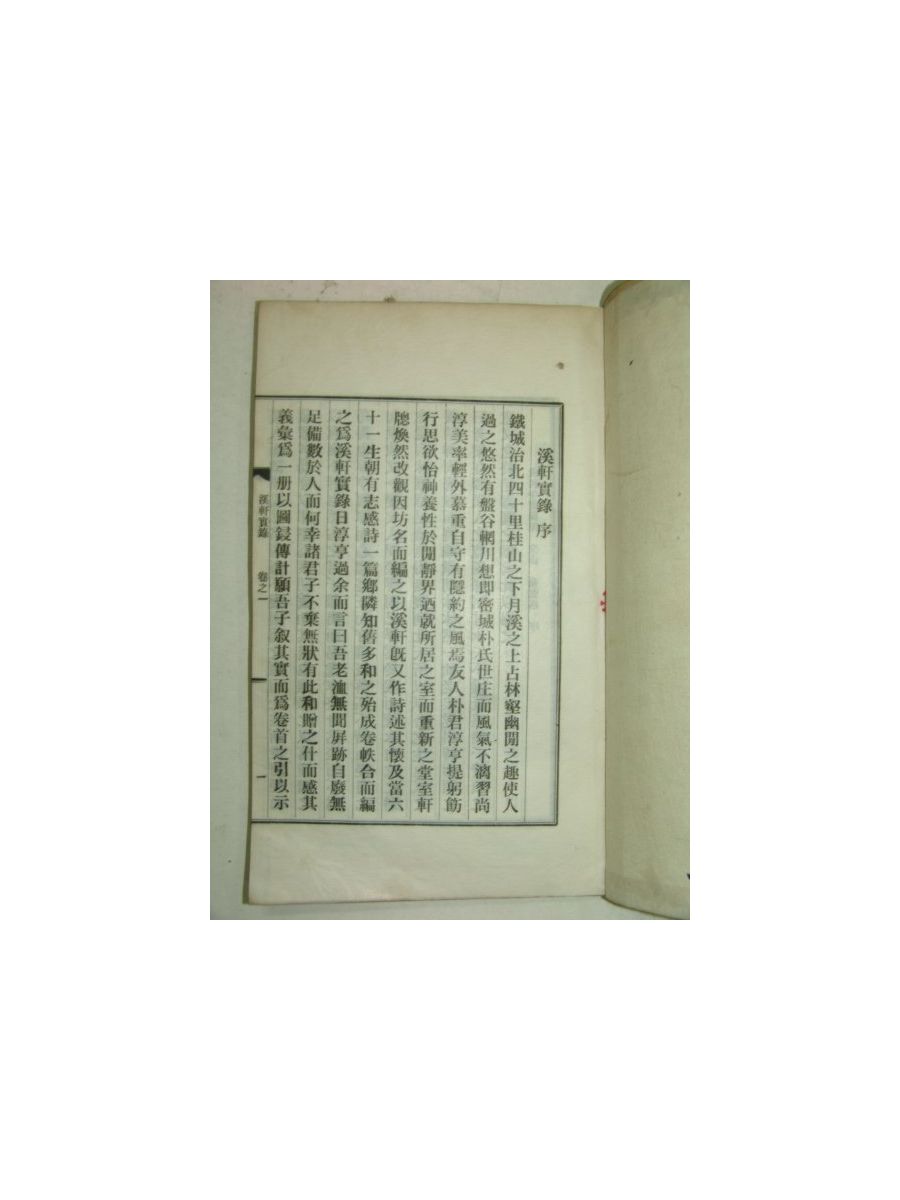 溪軒實錄 序
鐵城治北四十里桂山之下月溪之上占林壑幽閒之趣使人
過之悠然有盤谷輞川想即密城朴氏世庄而風氣不漓習尚
淳美率輕外慕重自守有隱約之風焉友人朴君淳亨提躬飭
行思欲怡神養性於閒靜界迺就所居之室而重新之堂室軒
牕煥然改觀因坊名而編之以溪軒旣又作詩述其懷及當六
十一生朝有志感詩一篇鄉隣知舊多和之殆成卷帙合而編
之爲溪軒實錄日淳亨過余而言曰吾老洫無聞屛跡自廢無
足備數於人而何幸諸君子不棄無狀有此和贈之什而感其
義彙爲一册以圖鋟傳計願吾子叙其實而爲卷首之引以示
溪軒實錄 卷之一 一